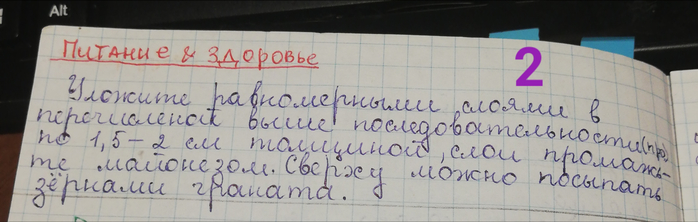 Alt
Питание & здоровье
2
Уложите равномерными слоями в
перечисленой выше последовательности(про)
по 1,5-2 см толщиной, слои промажь-
те майонезом. Сверху можно посыпать
зёрнами граната.